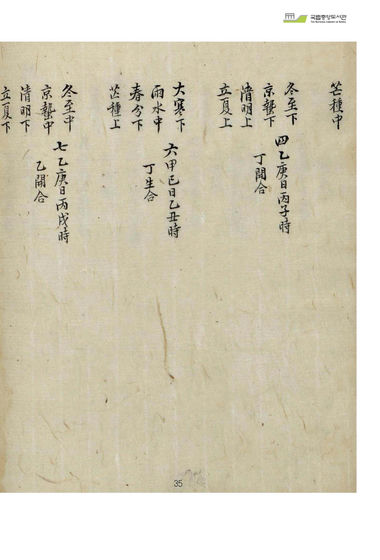 국립중앙도서관
芒種中
冬至下
京蟄下
清明上
立夏上
四乙庚日丙子時
丁開合
大寒下
雨水中
春分下
芒種上
六甲己日乙丑時
丁生合
冬至中
京蟄中
清明下
立夏下
七乙庚日丙戌時
乙開合
35